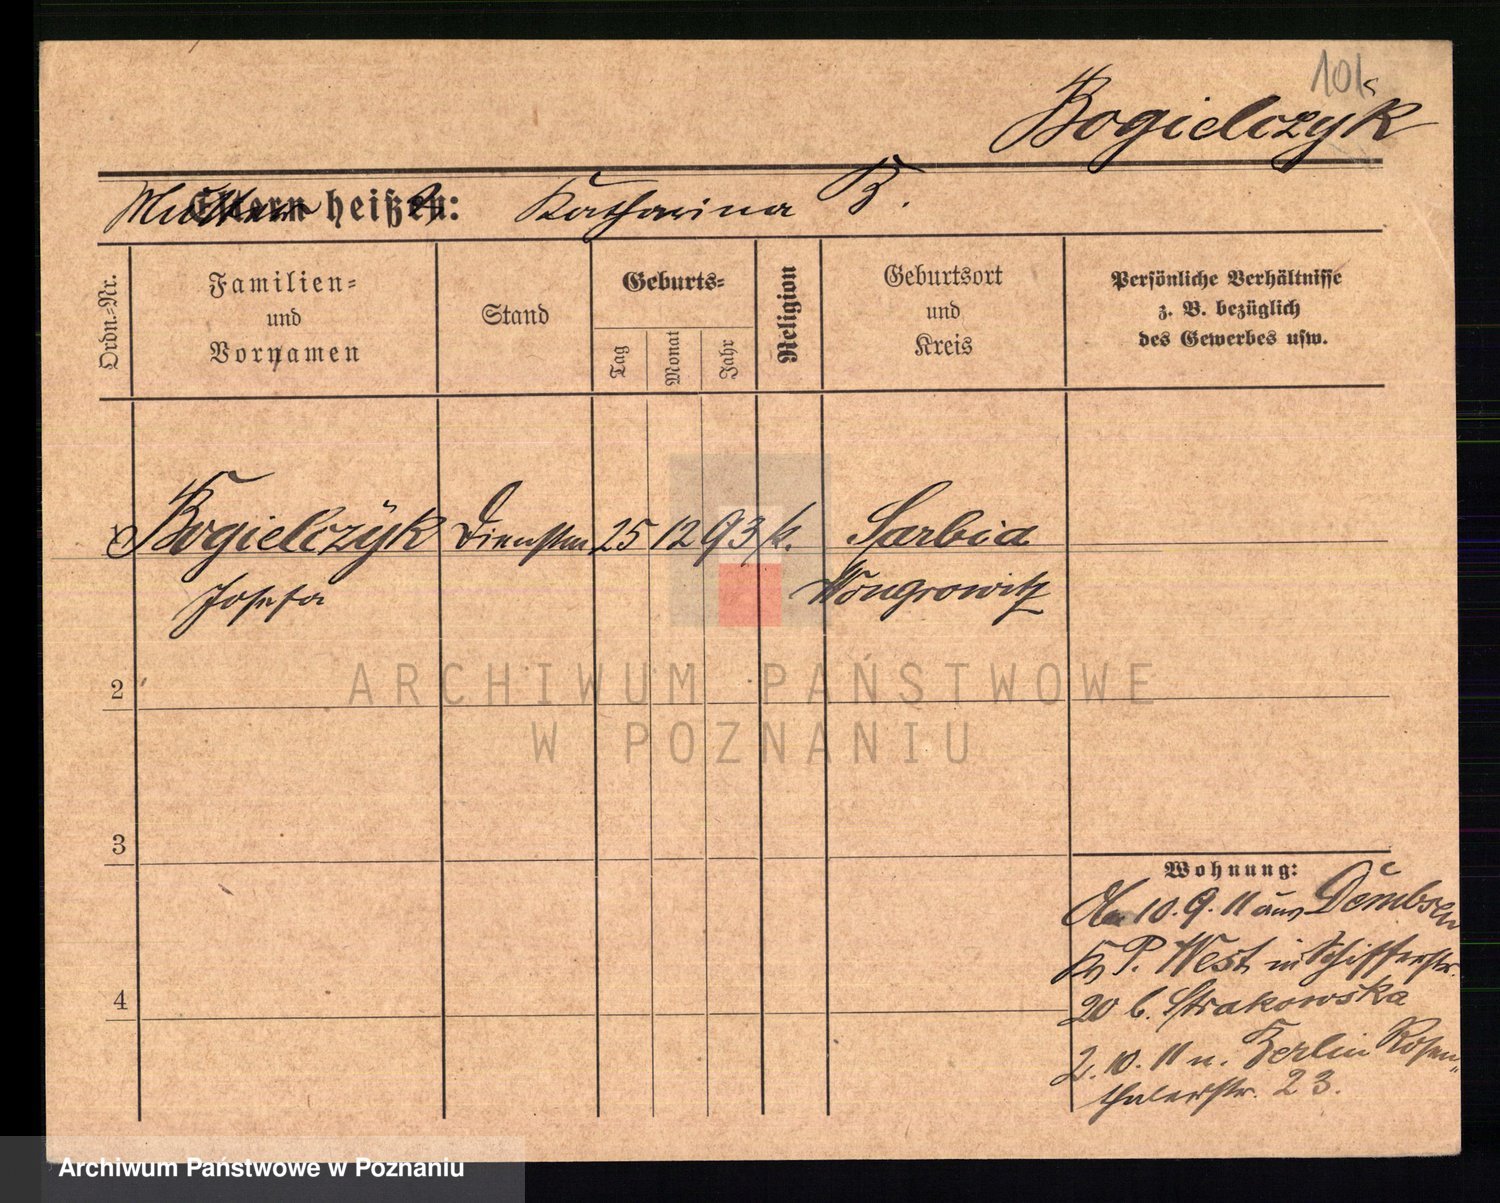 101
Bogielczyk
Mutter heißt: Katharina B.
Ordn.-Nr.
Familien-
und
Vornamen
Stand
Geburts-
Tag
Monat
Jahr
Religion
Geburtsort
und
Kreis
Persönliche Verhältnisse
z. B. bezüglich
des Gewerbes usw.
Bogielczyk Dienstm 25 12 93 k. Sarbia
Josefa Wongrowitz
2
3
4
Wohnung:
10. 9. 11 aus Dembsen
Kr P. West in Schifferstr.
20 b. Strakowska
2. 10. 11 n. Berlin Rosen-
thalerstr. 23.
ARCHIWUM PAŃSTWOWE
W POZNANIU
Archiwum Państwowe w Poznaniu